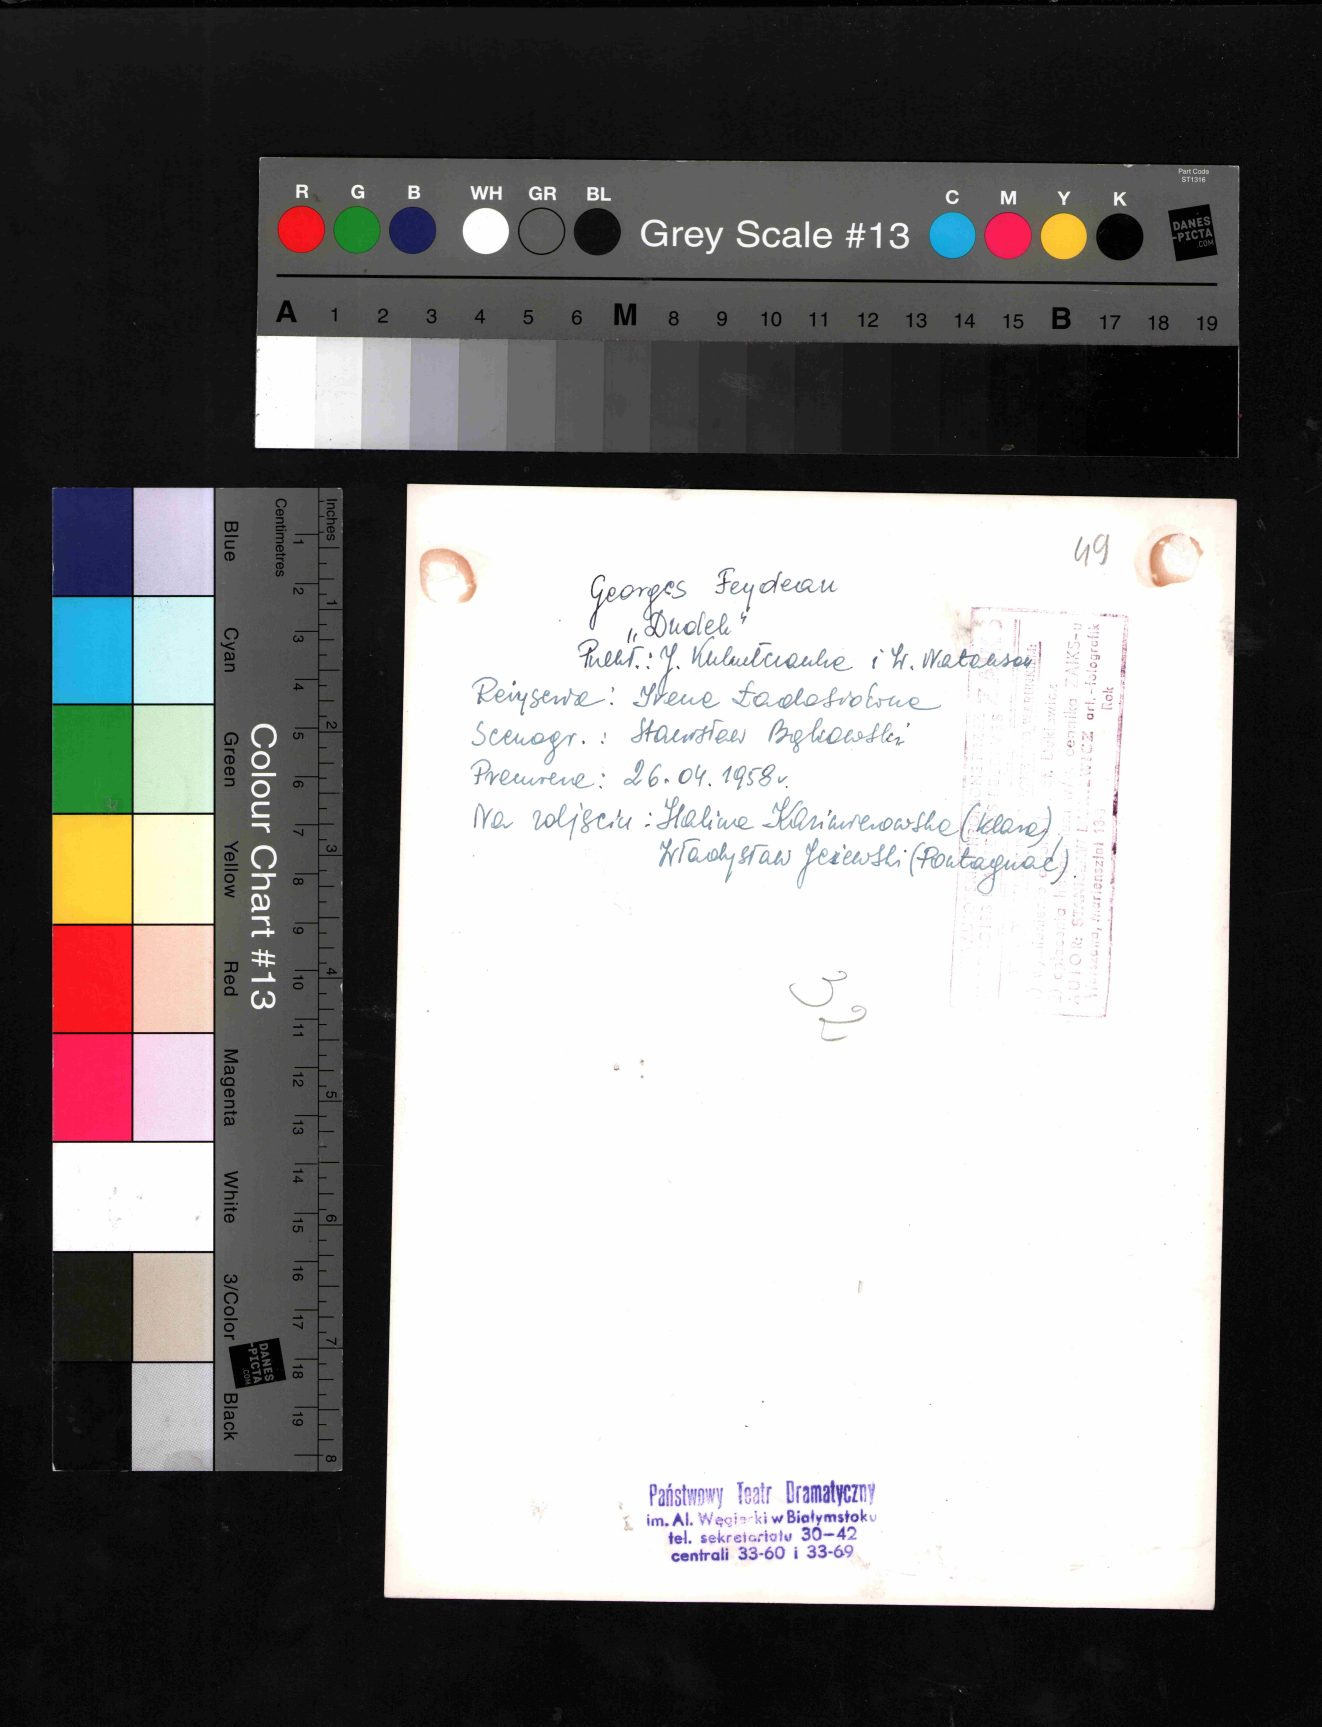 Part Code
ST1316
R G B WH GR BL Grey Scale #13 C M Y K
DANES
-PICTA
.COM
A 1 2 3 4 5 6 M 8 9 10 11 12 13 14 15 B 17 18 19
Colour Chart #13
Blue Cyan Green Yellow Red Magenta White 3/Color Black
Centimetres 1 2 3 4 5 6 7 8 9 10 11 12 13 14 15 16 17 18 19
Inches 1 2 3 4 5 6 7 8
DANES
-PICTA
.COM
49
Georges Feydeau
„Dudek"
Przekł.: J. i W. Natanson
Reżyseria: Irena Ładosiówna
Scenogr.: Stanisław Bąkowski
Premiera: 26.04.1958r.
Na zdjęciu: Halina Kazimierowska (Klara)
Władysław Jeżewski (Pontagnac).
cennika ZAIKS-u
AUTOR: art.-fotografik
Warszawa, Mariensztat
Rok
32
Państwowy Teatr Dramatyczny
im. Al. Węgierki w Białymstoku
tel. sekretariatu 30-42
centrali 33-60 i 33-69